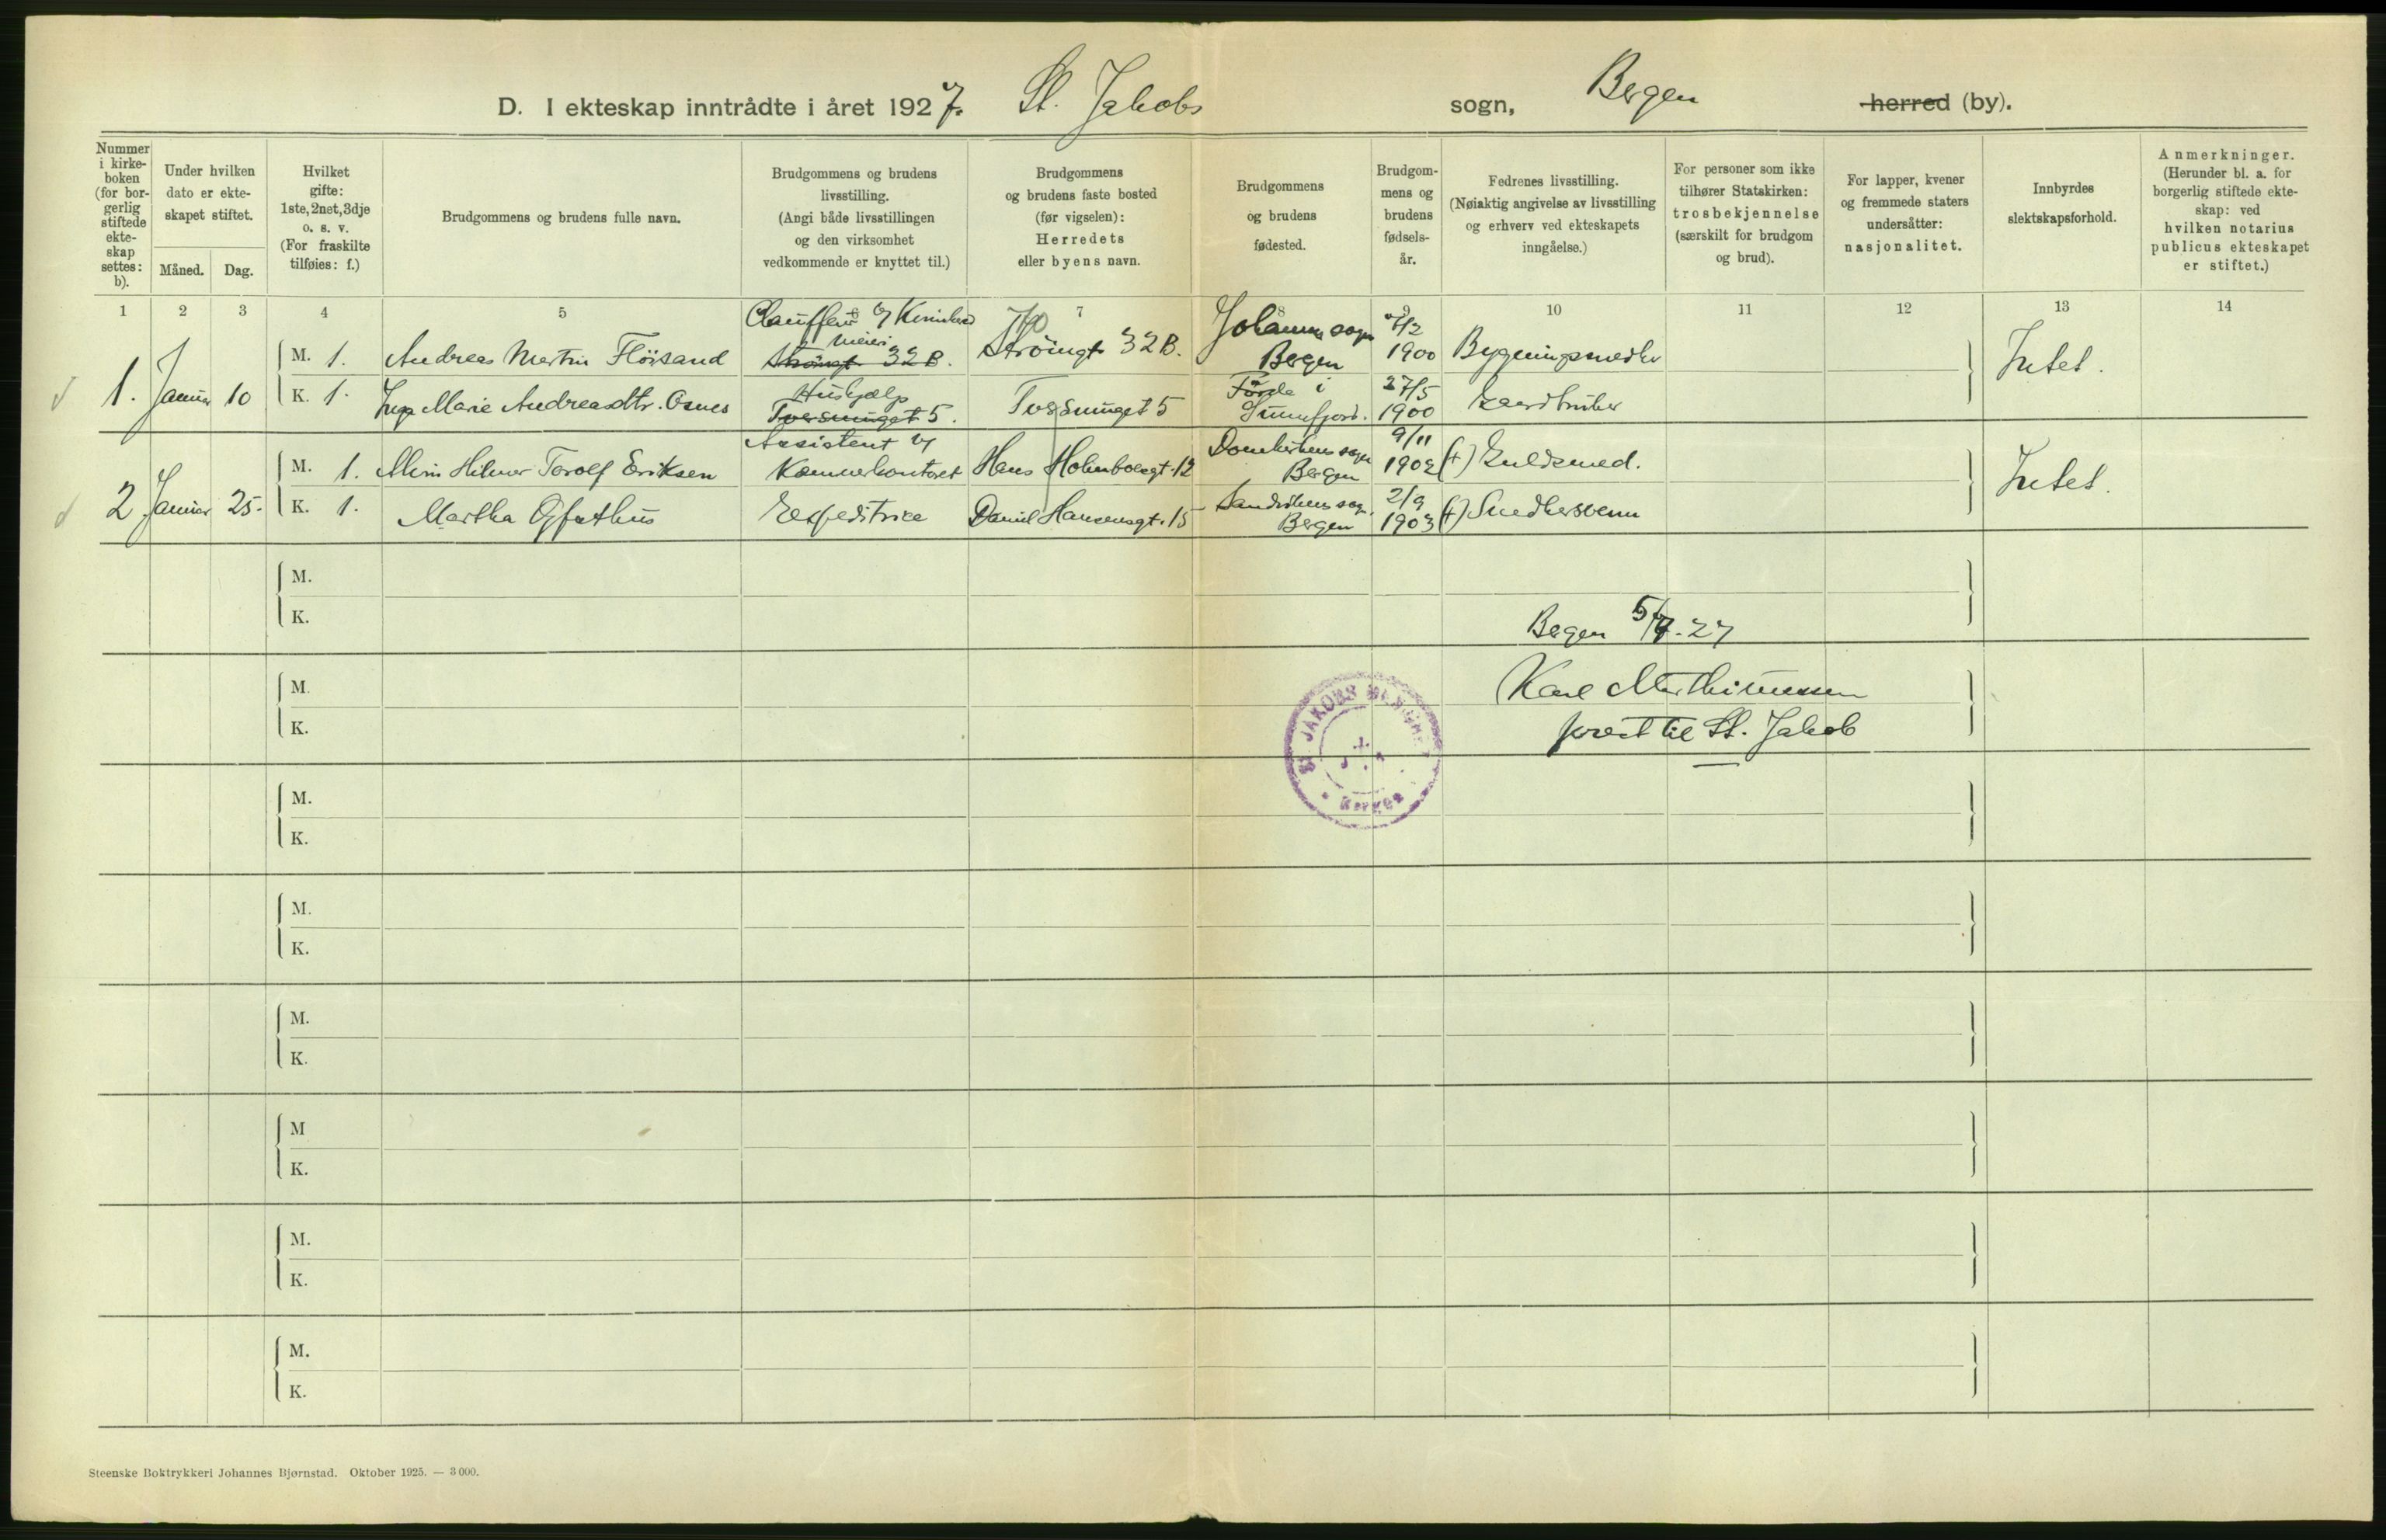 D. I ekteskap inntrådte i året 1927. St. Jakobs sogn, Bergen herred (by).
Nummer i kirkeboken (for borgerlig stiftede ekteskap settes: b).
Under hvilken dato er ekteskapet stiftet.
Måned. Dag.
Hvilket gifte: 1ste, 2net, 3dje o. s. v. (For fraskilte tilføies: f.)
Brudgommens og brudens fulle navn.
Brudgommens og brudens livsstilling. (Angi både livsstillingen og den virksomhet vedkommende er knyttet til.)
Brudgommens og brudens faste bosted (før vigselen): Herredets eller byens navn.
Brudgommens og brudens fødested.
Brudgommens og brudens fødselsår.
Fedrenes livsstilling. (Nøiaktig angivelse av livsstilling og erhverv ved ekteskapets inngåelse.)
For personer som ikke tilhører Statskirken: trosbekjennelse (særskilt for brudgom og brud).
For lapper, kvener og fremmede staters undersåtter: nasjonalitet.
Innbyrdes slektskapsforhold.
Anmerkninger. (Herunder bl. a. for borgerlig stiftede ekteskap: ved hvilken notarius publicus ekteskapet er stiftet.)
1 2 3 4 5 7 9 10 11 12 13 14
1. Januar 10
M. 1. Andreas Martin Flöisand meieri Ströingt 32 B. Ströingt 32 B. Johannes sogn Bergen 1900 Bygningssnedker Intet.
K. 1. Inga Marie Andreasdtr. Osnes Hushjælp Tversmuget 5. Tversmuget 5 Førde i Sunnfjord. 27/5 1900 Gaardbruker
2 Januar 25.
M. 1. Hilmar Torolf Eriksen Assistent v/ Kæmnerkontoret Hans Holmboesgt. 12 Domkirkens sogn Bergen 9/11 1902 (+) Guldsmed. Intet.
K. 1. Martha Ekspeditrice Daniel Hansensgt. 15 Sandvikens sogn. Bergen 2/9 1903 (+) Snedkersvenn
M.
K.
Bergen 27
M.
K.
Karl Marthinussen
prest til St. Jakob
ST JAKOBS MENIGHET Bergen
M.
K.
M.
K.
M.
K.
M
K.
M.
K.
M.
K.
Steenske Boktrykkeri Johannes Bjørnstad. Oktober 1925. — 3 000.